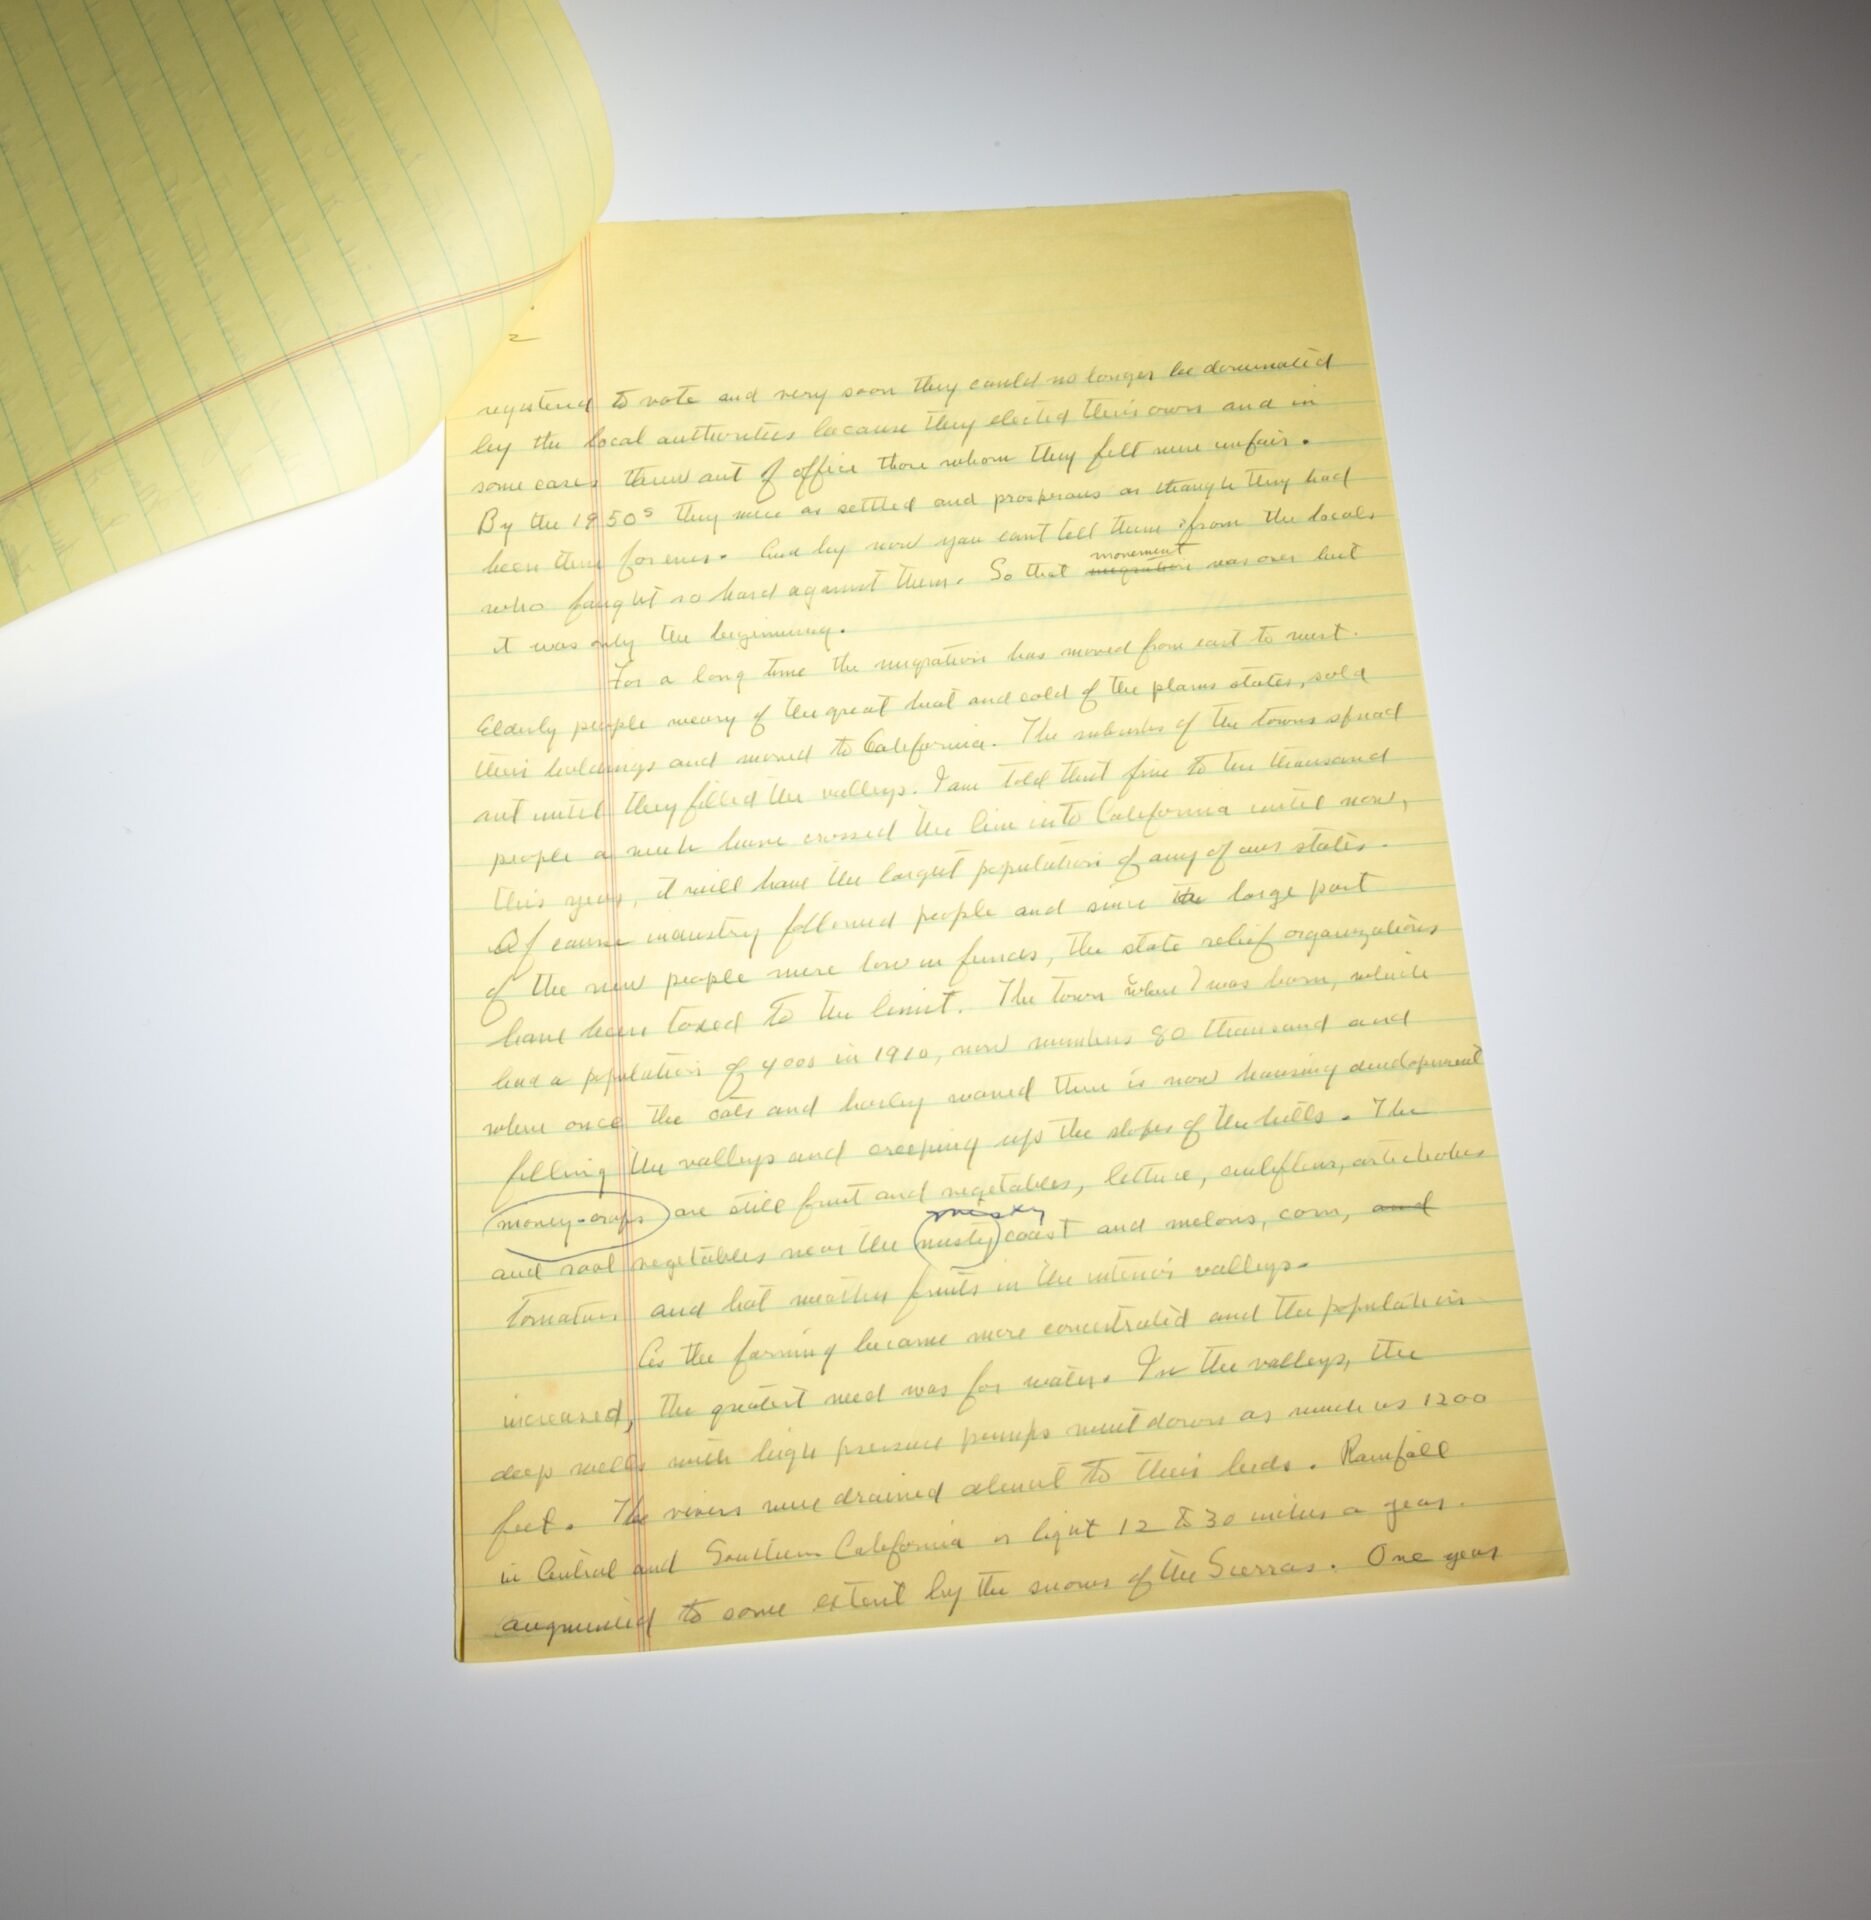 2
registered to vote and very soon they could no longer be dominated
by the local authorities because they elected their own and in
some cases threw out of office those whom they felt were unfair.
By the 1950s they were as settled and prosperous as though they had
been there forever. And by now you cant tell them from the locals
who fought so hard against them. So that migration movement was over but
it was only the beginning.
For a long time the migration has moved from east to west.
Elderly people weary of the great heat and cold of the plains states, sold
their holdings and moved to California. The suburbs of the towns spread
out until they filled the valleys. I am told that five to ten thousand
people a week have crossed the line into California until now,
this year, it will have the largest population of any of our states.
Of course industry followed people and since the large part
of the new people were low in funds, the state relief organizations
have been taxed to the limit. The town where I was born, which
had a population of 4000 in 1910, now numbers 80 thousand and
where once the oats and barley waved there is now housing development
filling the valleys and creeping up the slopes of the hills. The
money-crops are still fruit and vegetables, lettuce, culiflour, artichokes
misty
and root vegetables near the misty coast and melons, corn, and
tomatoes and hot weather fruits in the interior valleys.
As the farming became more concentrated and the population
increased, the greatest need was for water. In the valleys, the
deep wells with high pressure pumps went down as much as 1200
feet. The rivers were drained almost to their beds. Rainfall
in Central and Southern California is light 12 to 30 inches a year.
augmented to some extent by the snows of the Sierras. One year